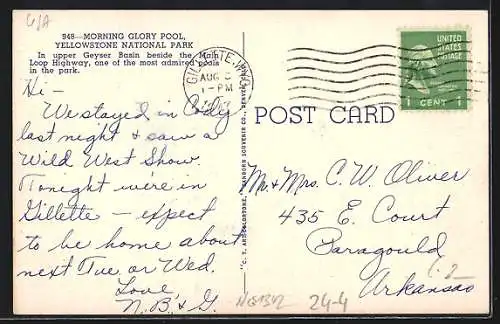 U/A
948—MORNING GLORY POOL,
YELLOWSTONE NATIONAL PARK
In upper Geyser Basin beside the Main
Loop Highway, one of the most admired pools
in the park.
GILLETTE, WYO.
AUG
1-PM
UNITED
STATES
POSTAGE
1 CENT 1
POST CARD
Hi -
We stayed in Cody
last night & saw a
Wild West Show.
Tonight we're in
Gillette — expect
to be home about
next Tue or Wed.
Love
N.B. & G.
Mr & Mrs. C. W. Oliver
435 E. Court
Paragould
Arkansas
24-4